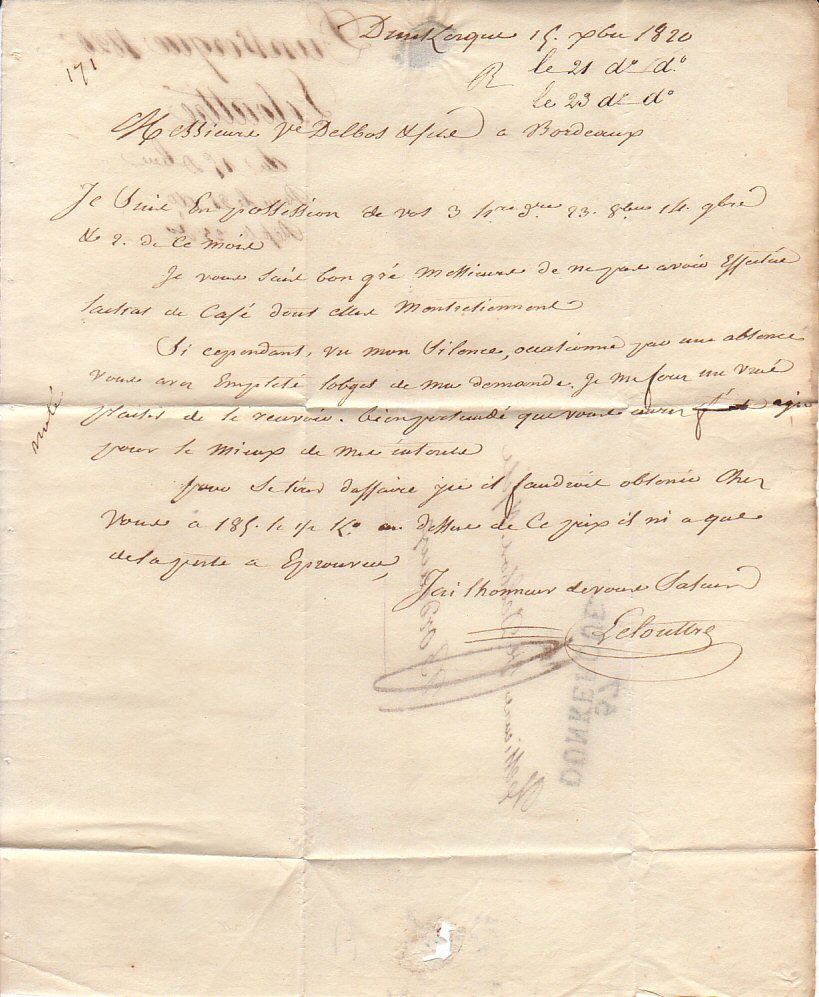 171
Dunkerque 15. xbre 1820
R le 21 do do
le 23 do do
Messieurs Ve Delbos & fils a Bordeaux
Je Suis En possession de vos 3 8bre 14. 9bre
& 2. de Ce mois
Je vous Sais bon gré Messieurs de ne pas avoir Effectué
lachat de Café dont elles Mentionnent
Si cependant, vu mon Silence, occasionné par une absence
vous avez Empletté lobjet de ma demande. Je me ferai un vrai
plaisir de le recevoir. bien persuadé que vous aurez agi
pour le Mieux de mes interets
noté
pour Se tirer daffaire ici il faudroit obtenir Chez
vous a 185. le ½ Ko. au dessus de Ce prix il ni a que
de la perte a Eprouver,
Jai lhonneur de vous Saluer
Leleuttre
DUNKERQUE